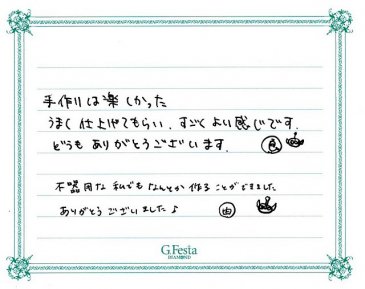 手作りは楽しかった
うまく仕上げてもらい、すごくよい感じです。
どうも ありがとうございます。
不器用な私でもなんとか作ることができました
ありがとうございました♪ 由
G.Festa
DIAMOND